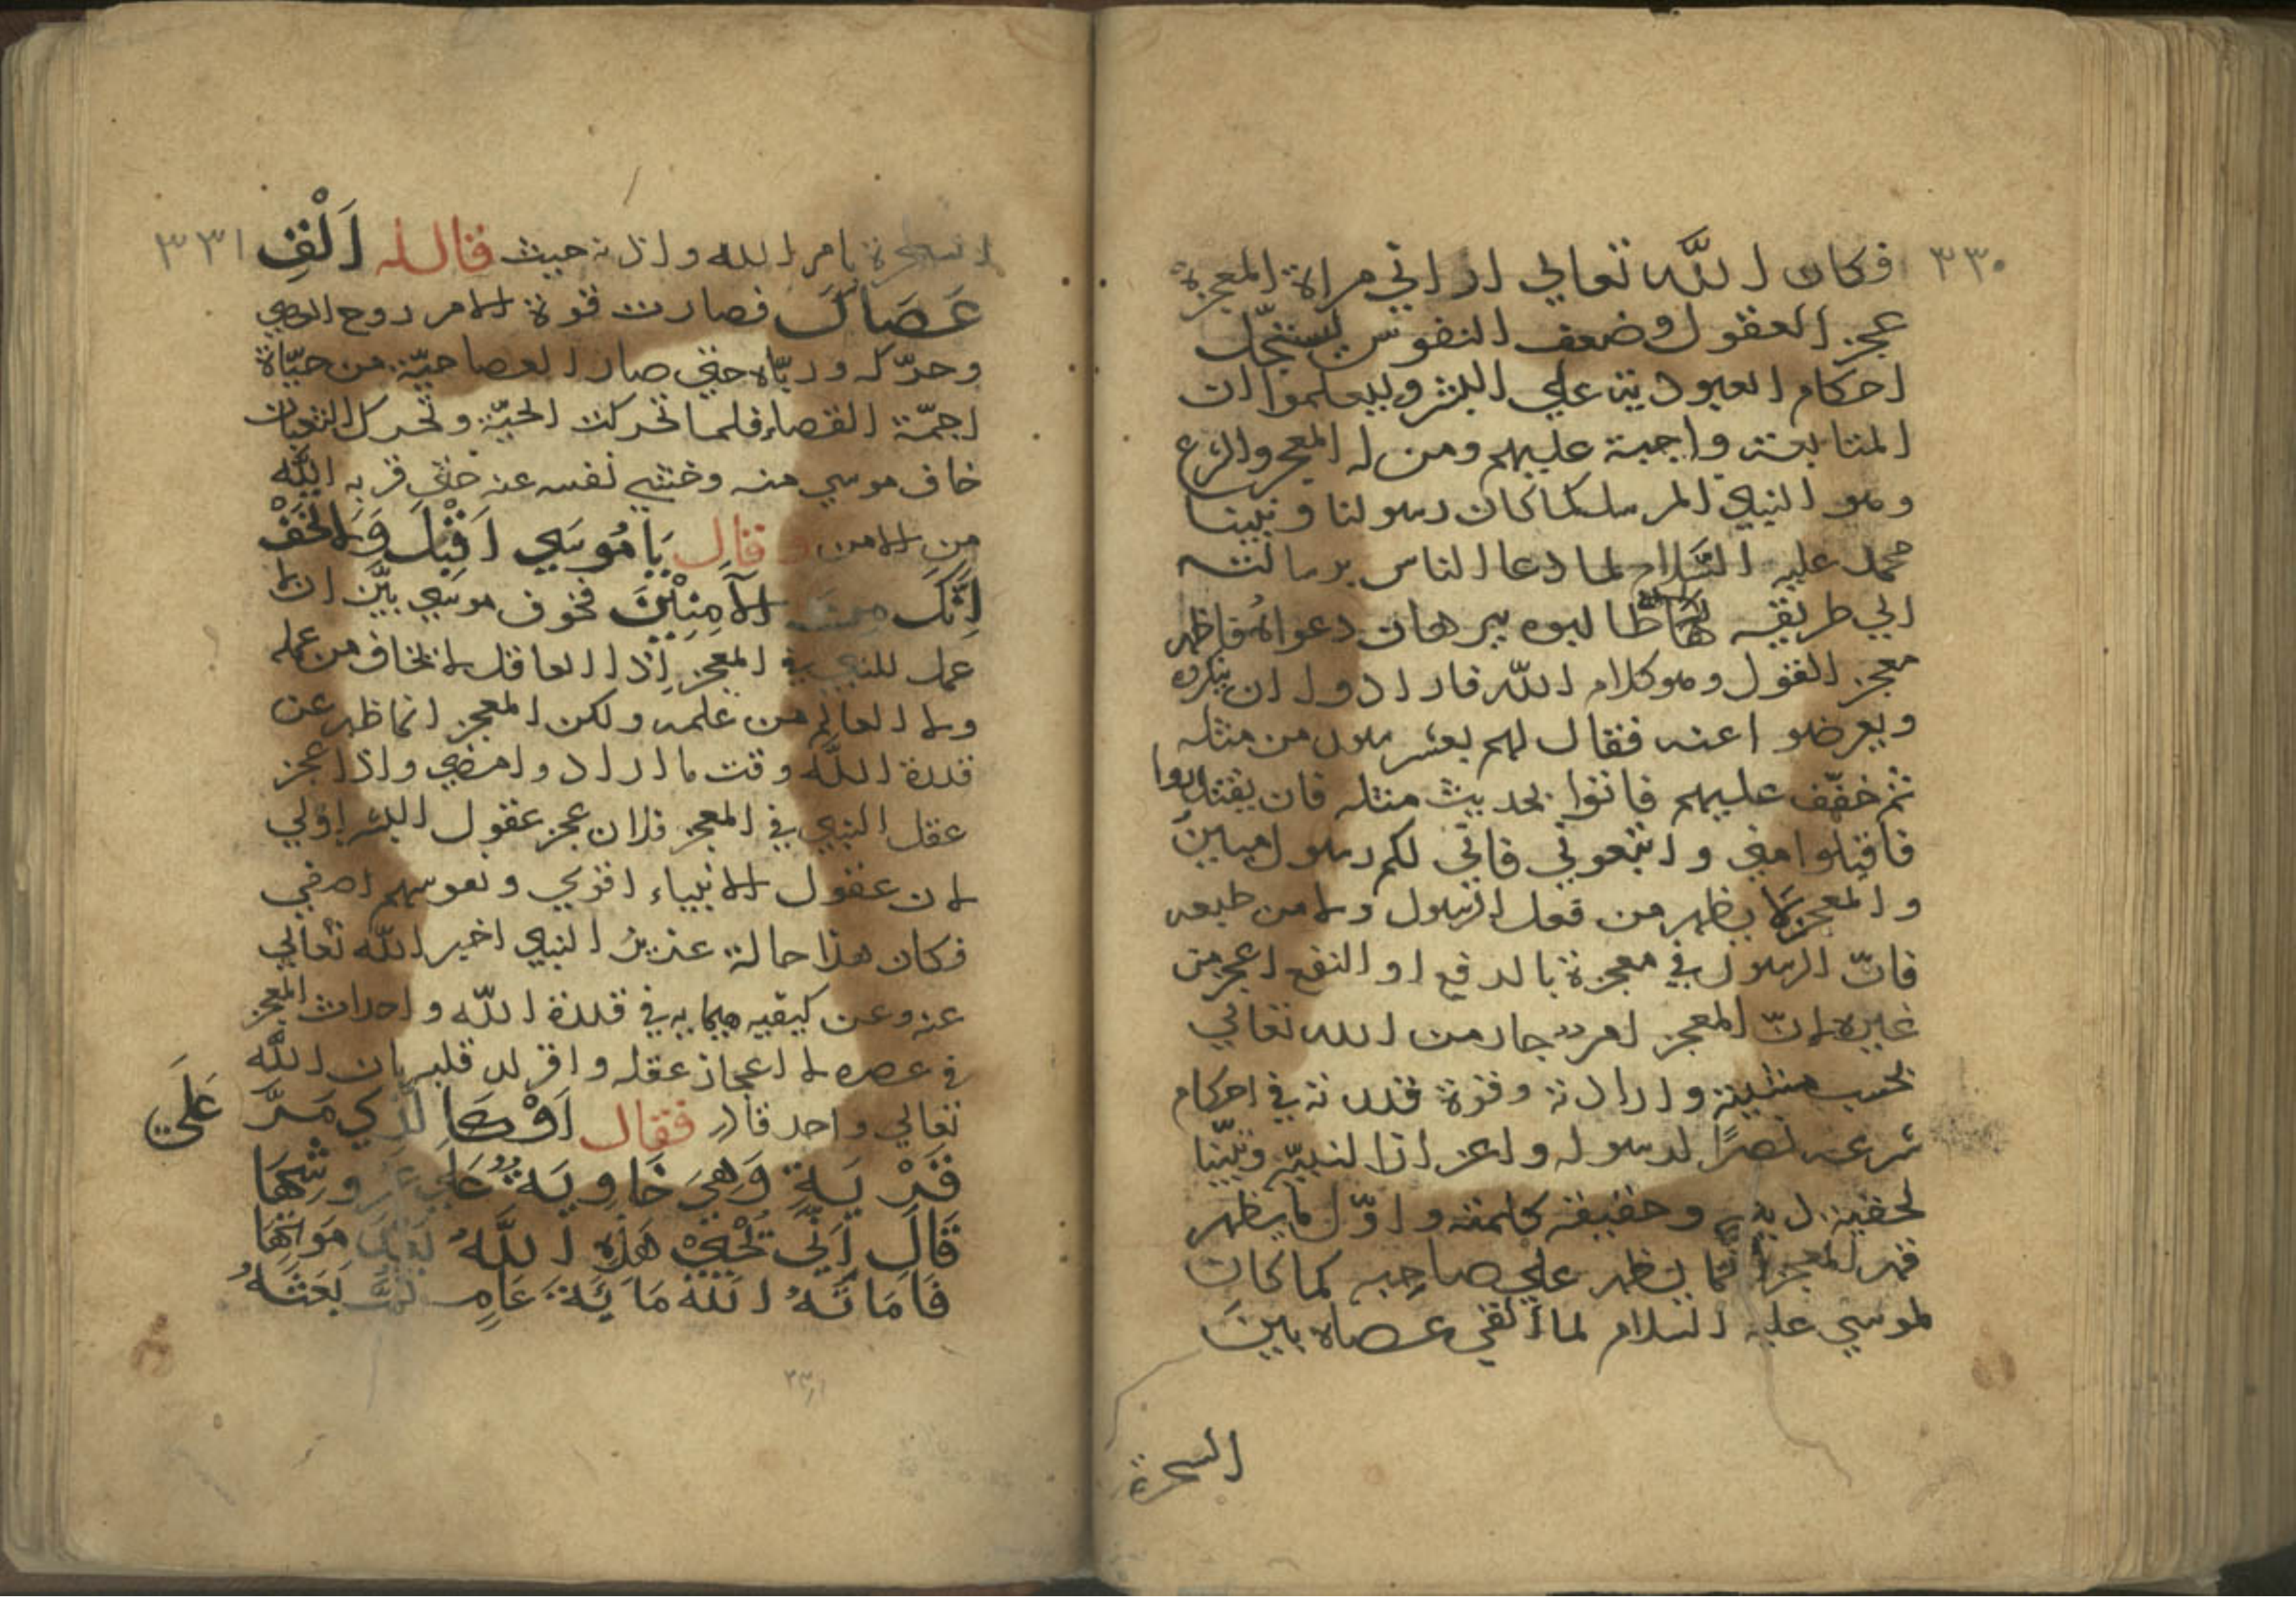 ٣٣٠
فكان الله تعالى اراني مراة المعجزة
عجز العقول وضعف النفوس ليستجل
احكام العبودية علي البشر وليعلموا ان
المتابعة واجبة عليهم ومن له المعجز والشرع
وهو النبي المرسل كما كان رسولنا ونبينا
محمد عليه السلام لما دعا الناس برسالته
الي طريقه طالبوه ببرهان دعواه فاظهر
معجز القول وهو كلام الله فارادوا ان ينكروه
ويعرضوا عنه فقال لهم بعشر سور من مثله
ثم خفف عليهم فاتوا بحديث مثله فان
فاقبلوا مني واتبعوني فاني لكم رسول مبين
والمعجز لا يظهر من فعل الرسول ولا من طبعه
فان الرسول في معجزة بالدفع او النفع اعجز من
غيره لان المعجز امر جار من الله تعالي
بحسب مشيته وارادته وقوة قدرته في احكام
شرعه نصرًا لرسوله واعزازا لنبيه
لحقية وحقيقة كلمته واول ما يظهر
قهر المعجز انما يظهر علي صاحبه كما كان
لموسي عليه السلام لما القي عصاه بين
السحرة
٣٣١
السحرة بامر الله واذنه حيث قال له اَلْقِ
عَصَاكَ فصارت قوة الامر روح العصي
وحركه ورباه حتي صار العصا حية من حياة
القصاء فلما تحركت الحية وتحرك الثعبان
خاف موسي منه وخشي نفسه عنه حتي قربه الله
من الامن وقال يَا مُوسَي اَقْبِلْ وَلَا تَخَفْ
اِنَّكَ مِنَ الآمِنِيْنَ فخوف موسي بيّن ان لا
عمل للنبي في المعجز اذا العاقل لا يخاف من عمله
ولا العالم من علمه ولكن المعجز انما ظهر عن
قدرة الله وقت ما اراد وامضي واذا عجز
عقل النبي في المعجز فلان عجز عقول البشر اولي
لان عقول الانبياء اقوي ونفوسهم اصفي
فكان هذا حالة عزير النبي اخبر الله تعالي
عنه وعن كيفيه في قدرة الله واحداث المعجز
في عصره لا اعجاز عقله واقر له قلبه بان الله
تعالي واحد قادر فقال اَوْ كَا لَّذِي مَرَّ عَلَي
قَرْيَةٍ وَهِيَ خَاوِيَةٌ عَلَي عُرُوشِهَا
قَالَ اَنَّي يُحْيِيْ هَذِهِ اللَّهُ بَعْدَ مَوْتِهَا
فَاَمَاتَهُ اللهُ مَايَةَ عَامٍ ثُمَّ بَعَثَهُ
٣٣١